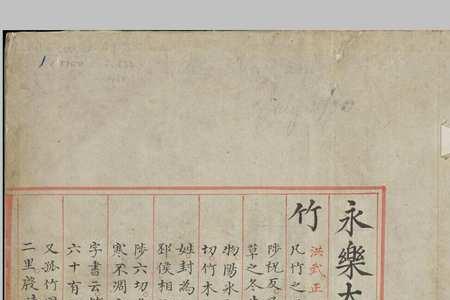 永樂大
竹
洪武正
凡竹之
陟
草之冬生
物陽氷
切竹木
姓封為
邳侯相
陟六切
寒不凋
字書云
六十有
又孫竹
二里殷